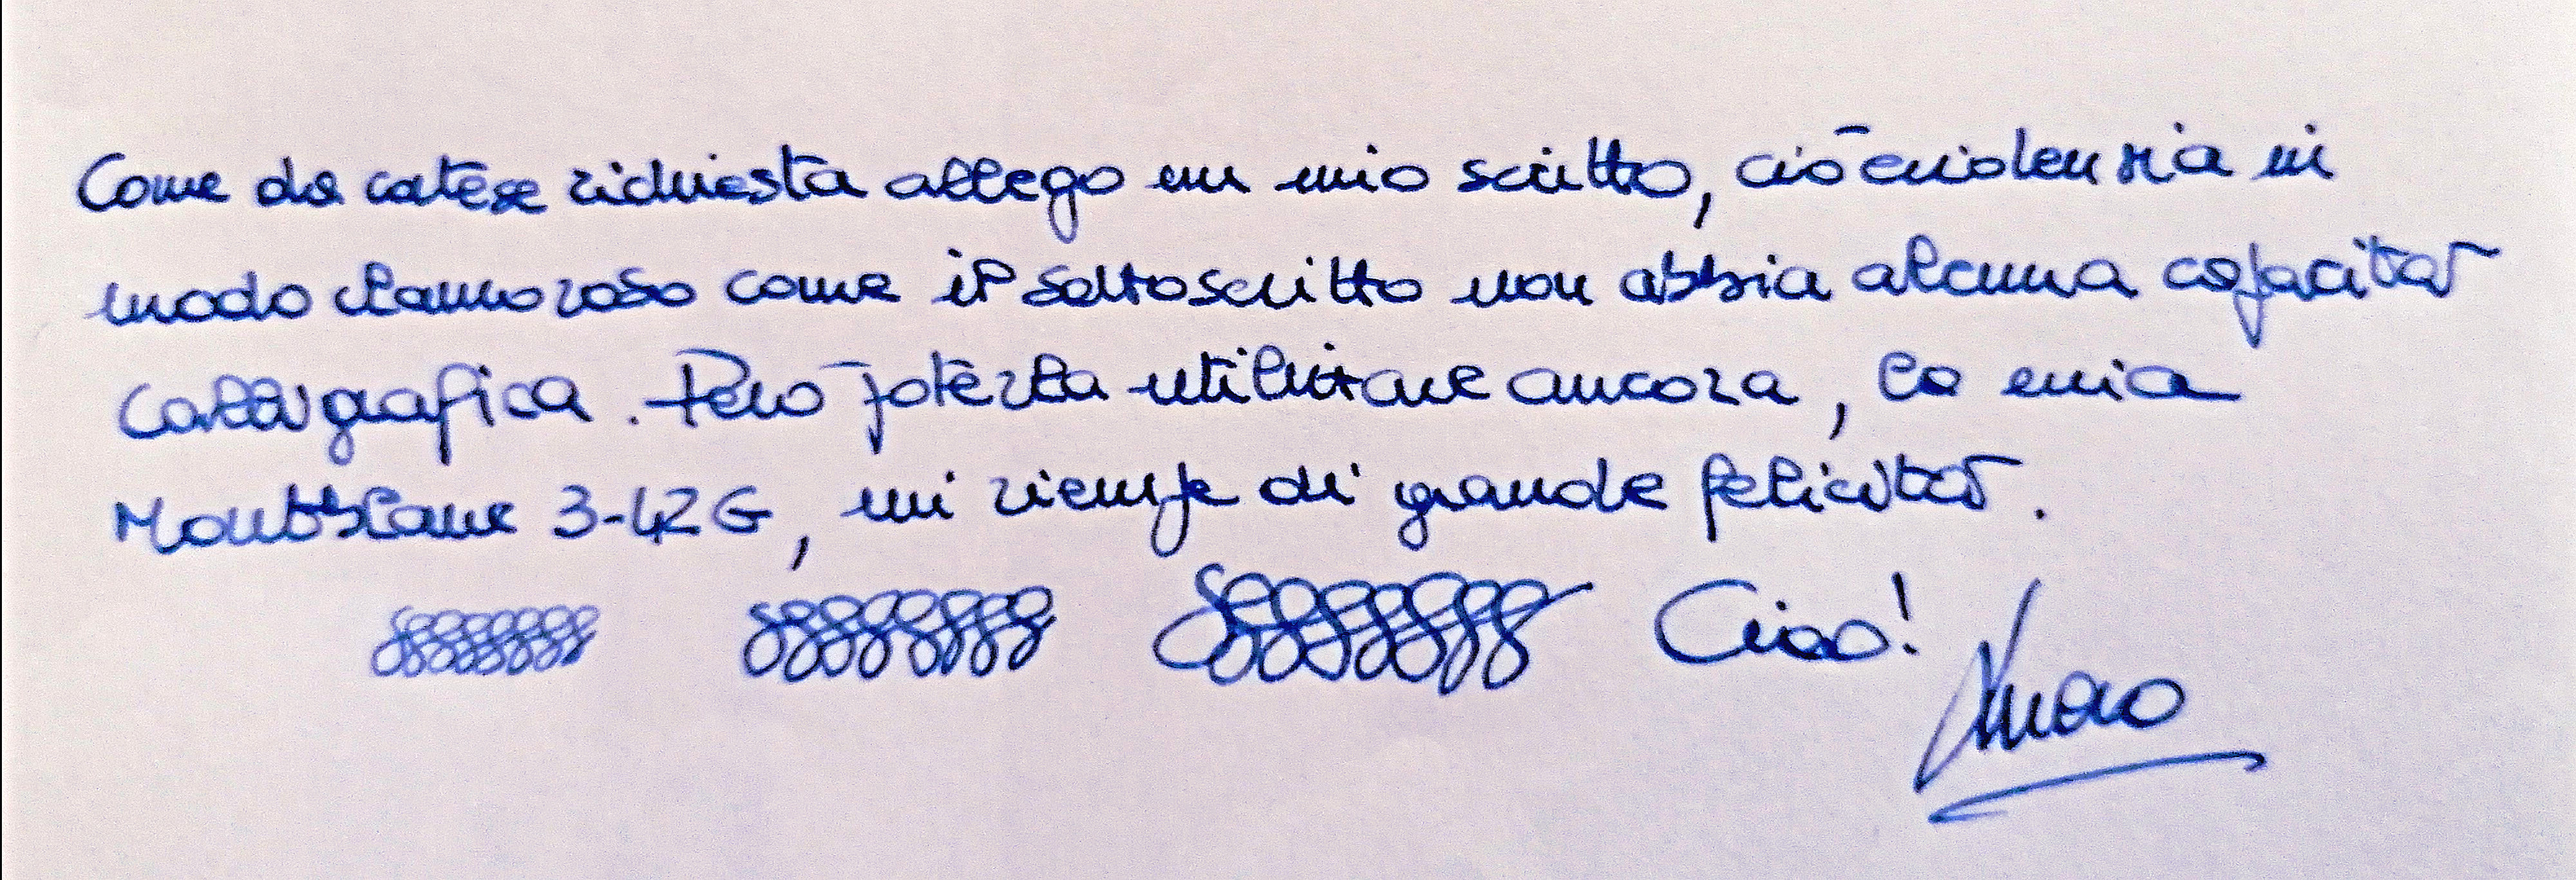 Come da cortese richiesta allego un mio scritto, ciò evidenzia in
modo clamoroso come il sottoscritto non abbia alcuna capacità
calligrafica. Però poterla utilizzare ancora, la mia
Montblanc 3-42 G, mi riempe di grande felicità.
Ciao!